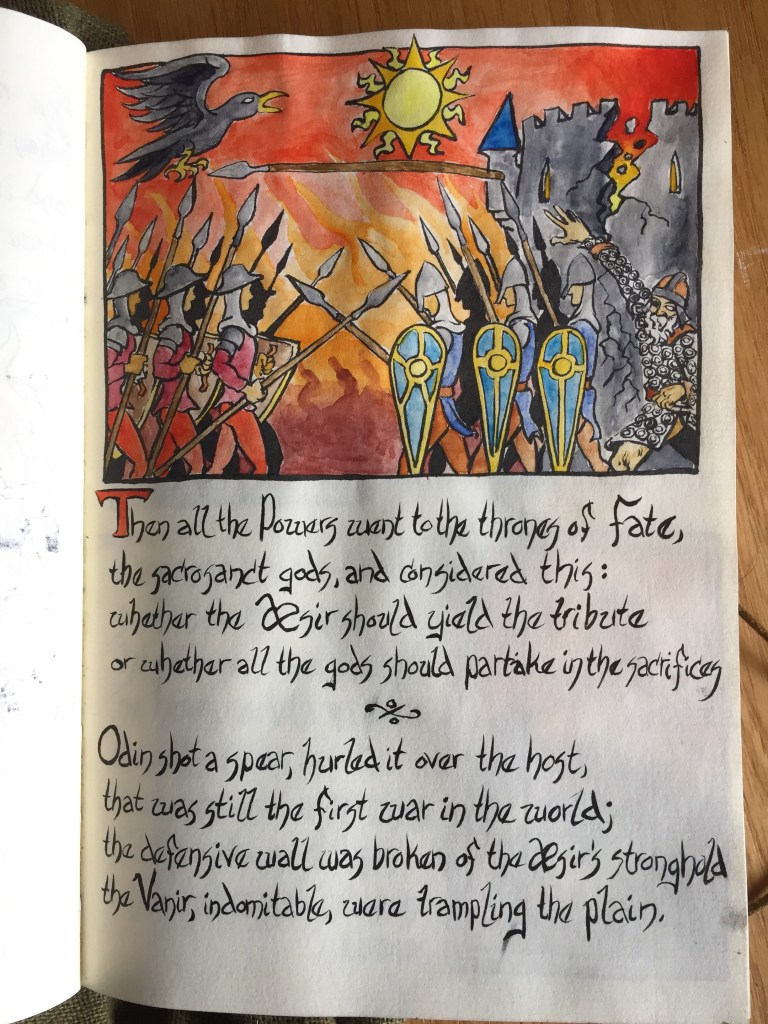 Then all the Powers went to the thrones of Fate,
the sacrosanct gods, and considered this:
whether the Æsir should yield the tribute
or whether all the gods should partake in the sacrifices
Odin shot a spear, hurled it over the host,
that was still the first war in the world;
the defensive wall was broken of the Æsir's stronghold
the Vanir, indomitable, were trampling the plain.